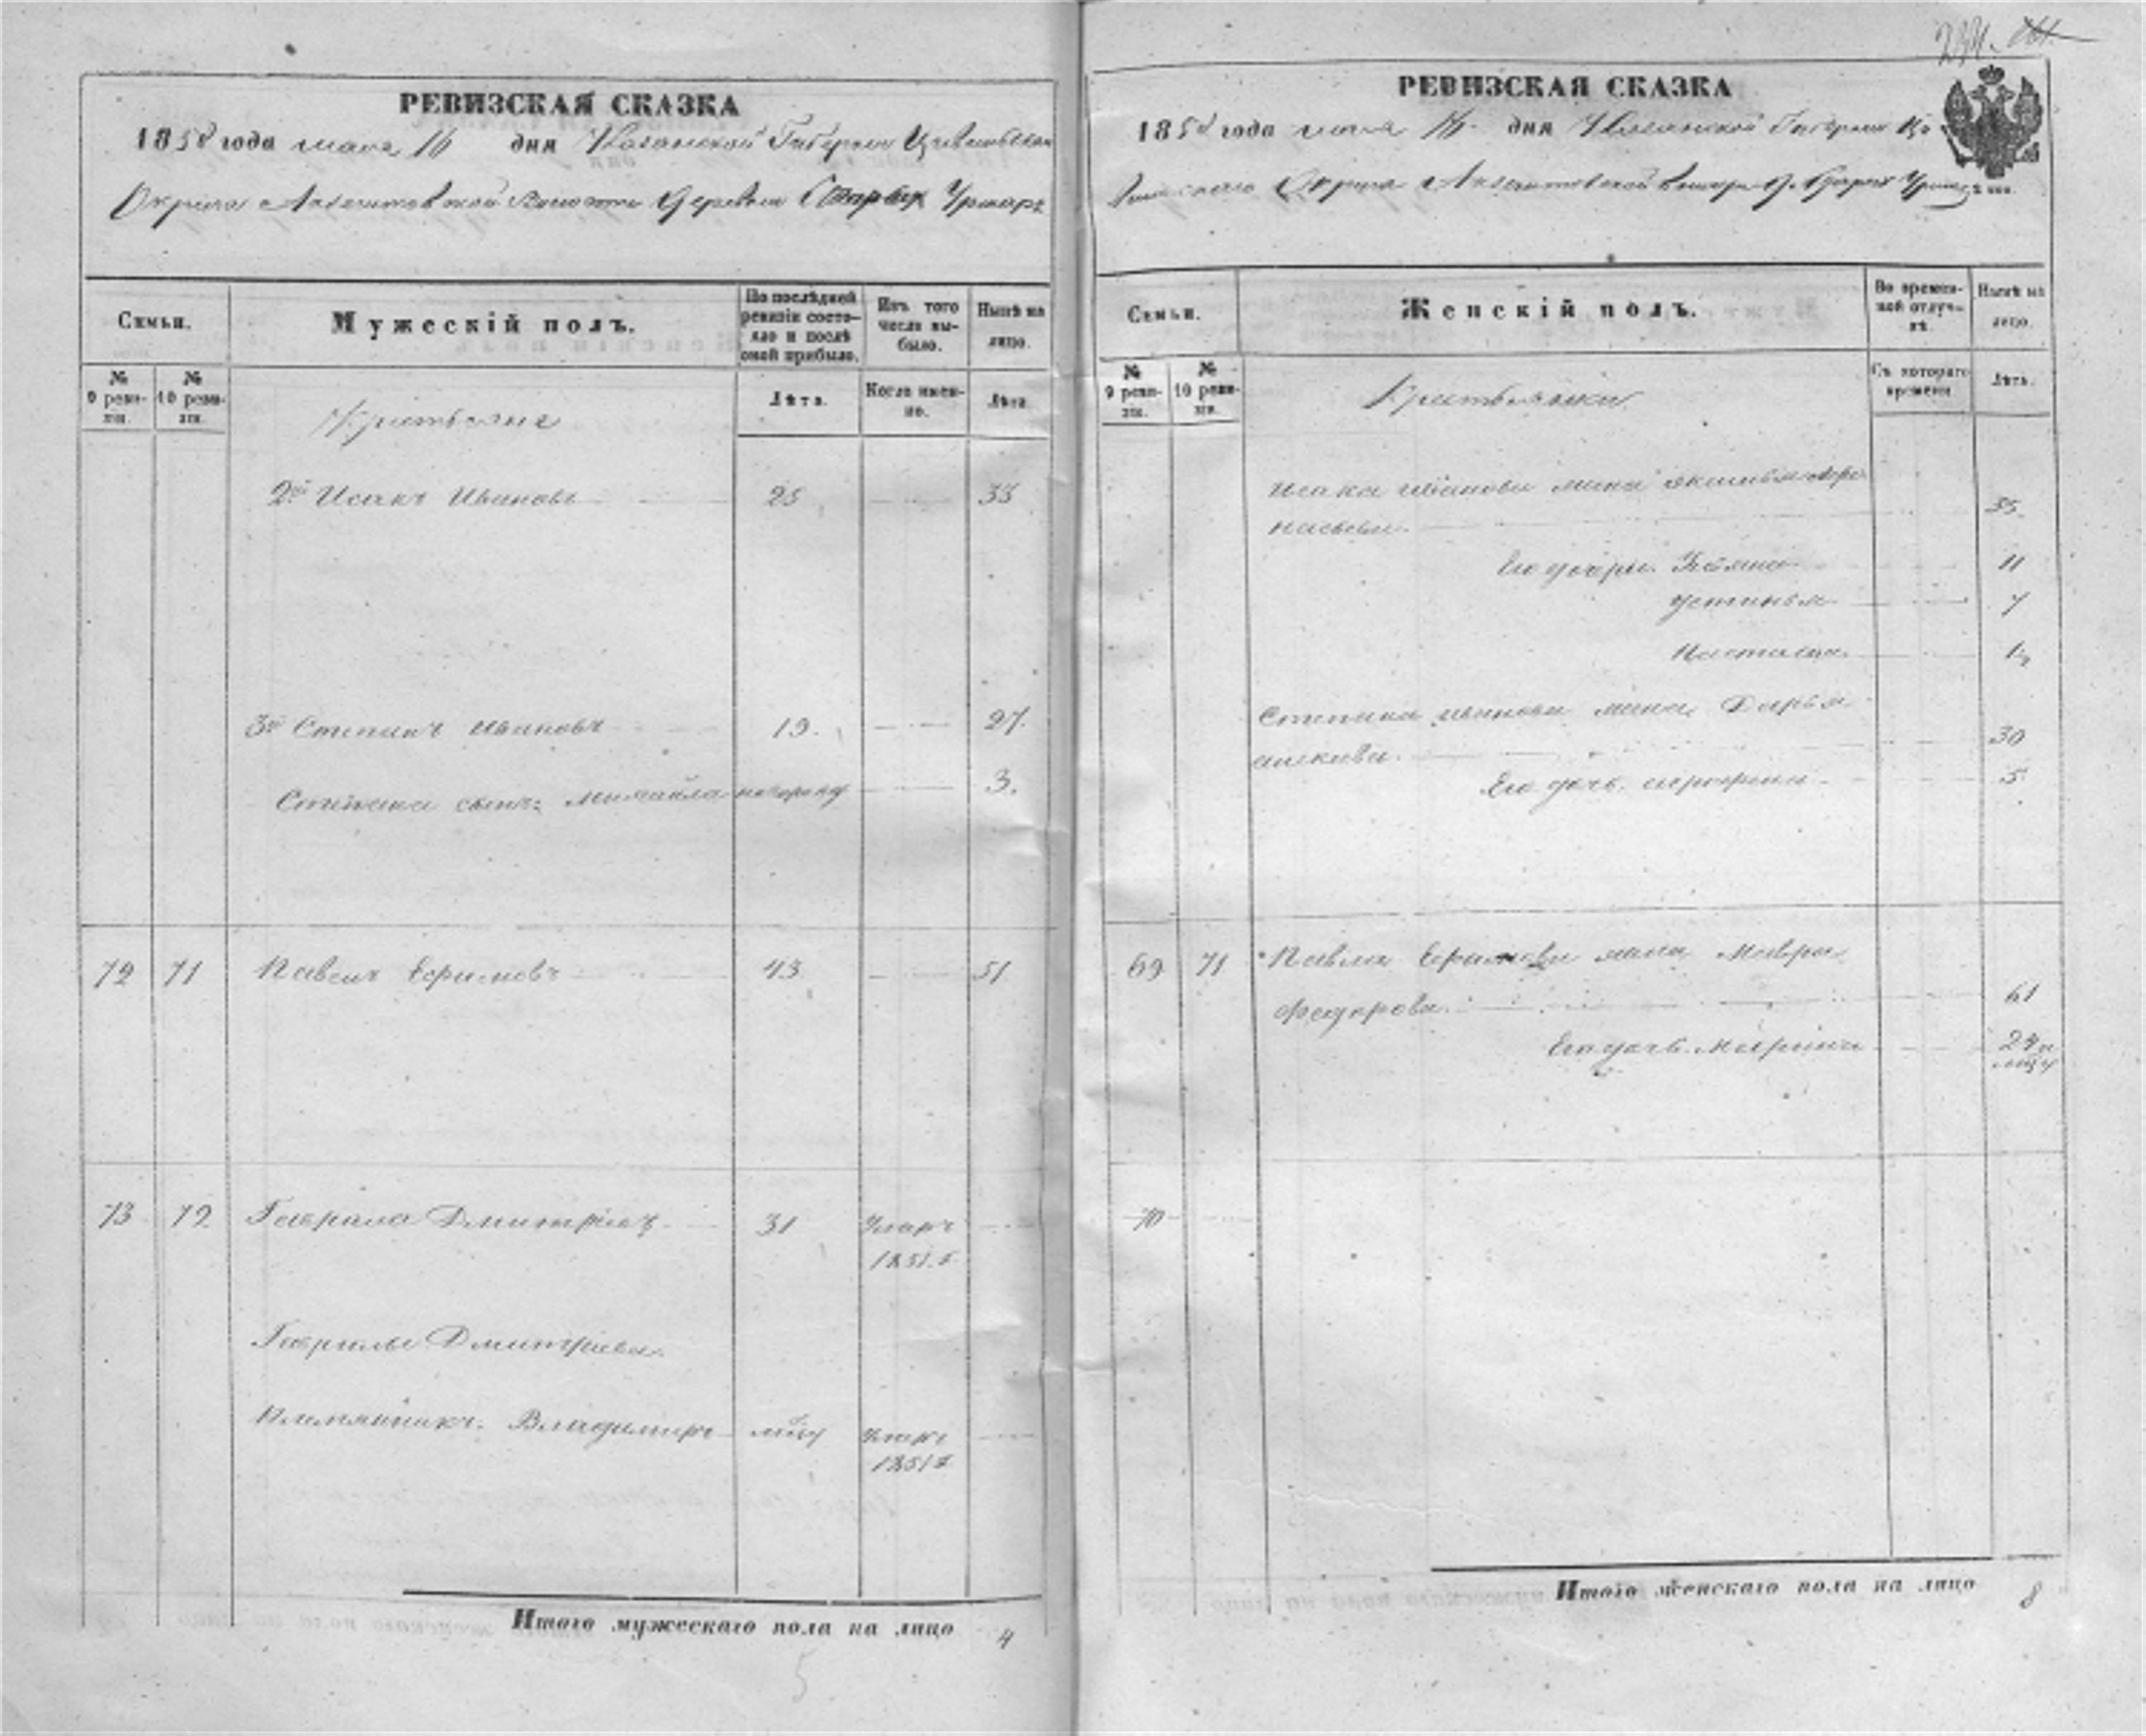 РЕВИЗСКАЯ СКАЗКА
1858 года маія 16 дня Казанской Губерніи Цивильскаго
Округа Деревни Старых Урмаръ
Семьи.
Мужескій полъ.
По послѣдней ревизіи состояло и послѣ оной прибыло.
Изъ того числа выбыло.
Нынѣ на лицо.
№ 9 ревизіи.
№ 10 ревизіи.
Лѣта.
Когда именно.
Лѣта
Крестьяне
2й Исакъ Ивановъ 25 33
3й Степанъ Ивановъ 19. 27.
Степана сынъ Михайла 3.
72 71 Павелъ Ефимовъ 43 51
73 72 Гаврила Дмитріевъ 31
1851 г.
Гаврилы Дмитріева
Племянникъ Владимиръ
1851 г.
Итого мужескаго пола на лицо 4
5
РЕВИЗСКАЯ СКАЗКА
1858 года маія 16 дня Казанской Губерніи
Округа
Семьи.
Женскій полъ.
Во временной отлучкѣ.
Нынѣ на лицо.
№ 9 ревизіи.
№ 10 ревизіи.
Съ котораго времени.
Лѣта.
Крестьянки
Исака Иванова жена
35.
Его дочери: 11
Устинья 7
Настасья
Степана Иванова жена Дарья
30
Его дочь 5
69 71 Павла Ефимова жена Мавра
Федорова. 61
Его дочь Марина 24
70
Итого женскаго пола на лицо 8